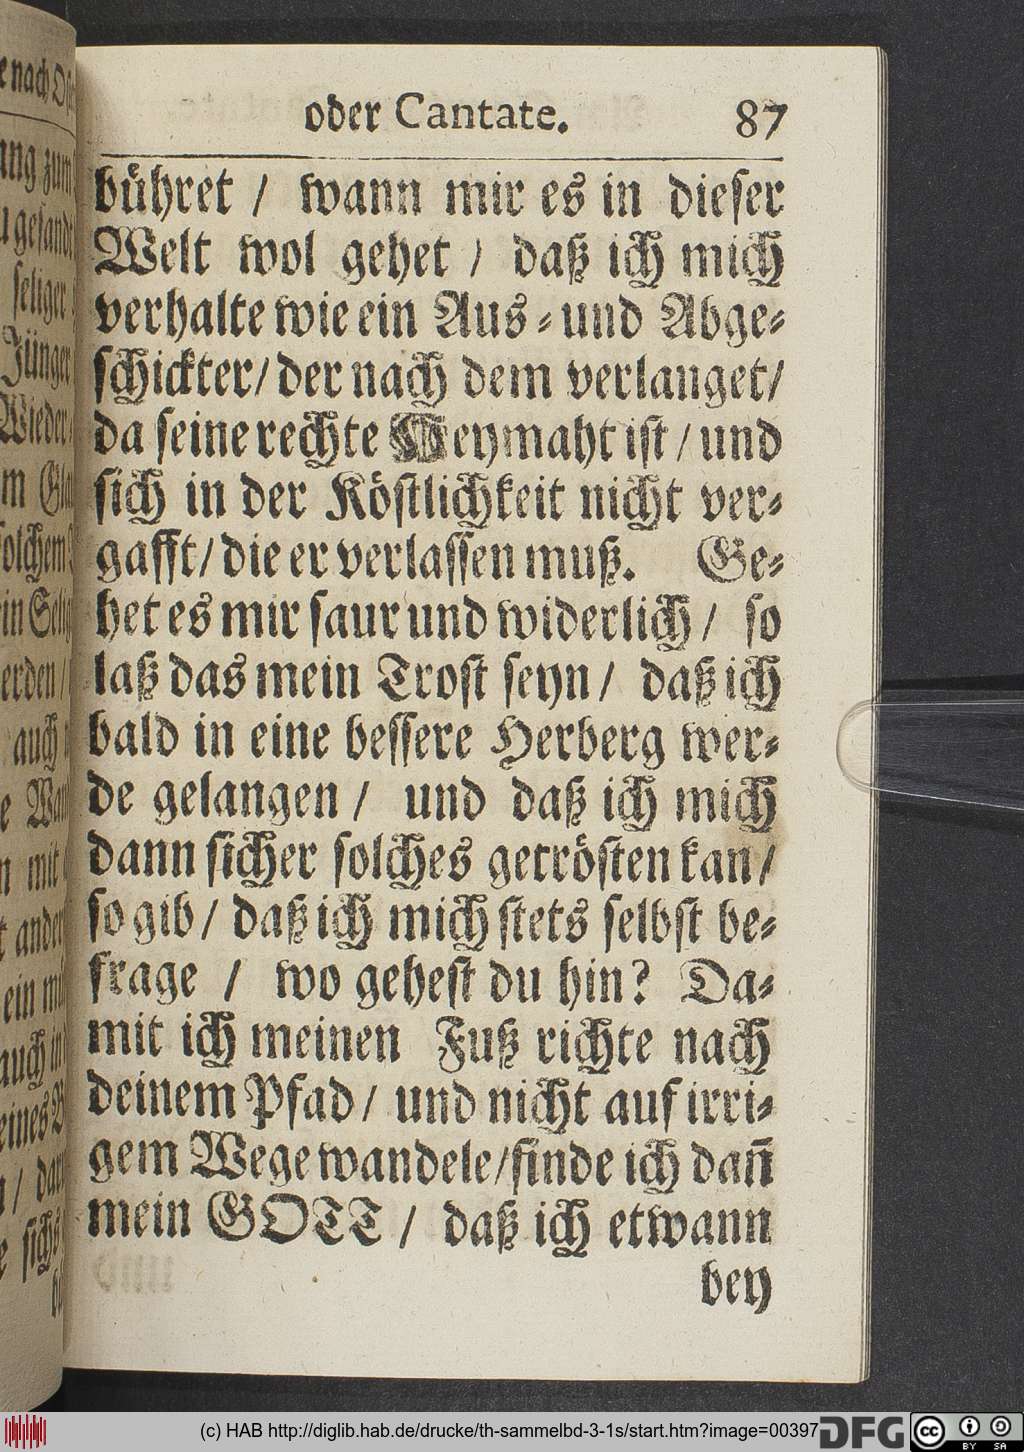 oder Cantate. 87
bühret / wann mir es in dieser
Welt wol gehet / daß ich mich
verhalte wie ein Aus-und Abge-
schickter/ der nach dem verlanget/
da seine rechte Heymaht ist / und
sich in der Köstlichkeit nicht ver-
gafft/ die er verlassen muß. Ge-
het es mir saur und widerlich / so
laß das mein Trost seyn / daß ich
bald in eine bessere Herberg wer-
de gelangen / und daß ich mich
dann sicher solches getrösten kan /
so gib / daß ich mich stets selbst be-
frage / wo gehest du hin? Da-
mit ich meinen Fuß richte nach
deinem Pfad / und nicht auf irri-
gem Wege wandele/finde ich dañ
mein GOTT / daß ich etwann
bey
(c) HAB http://diglib.hab.de/drucke/th-sammelbd-3-1s/start.htm?image=00397
DFG cc BY SA